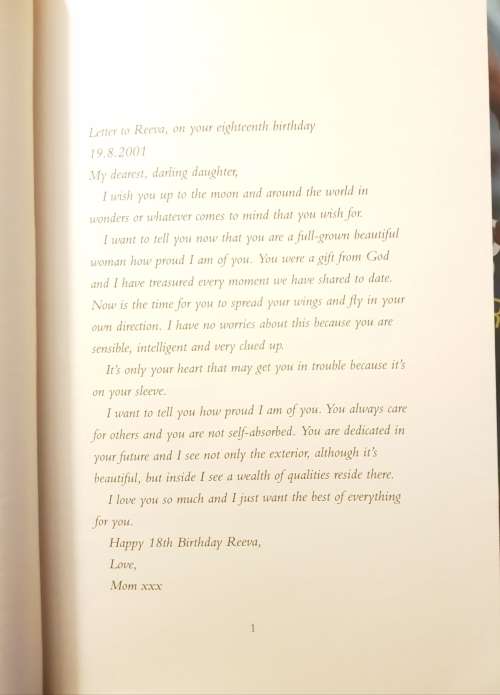 Letter to Reeva, on your eighteenth birthday
19.8.2001
My dearest, darling daughter,
I wish you up to the moon and around the world in
wonders or whatever comes to mind that you wish for.
I want to tell you now that you are a full-grown beautiful
woman how proud I am of you. You were a gift from God
and I have treasured every moment we have shared to date.
Now is the time for you to spread your wings and fly in your
own direction. I have no worries about this because you are
sensible, intelligent and very clued up.
It's only your heart that may get you in trouble because it's
on your sleeve.
I want to tell you how proud I am of you. You always care
for others and you are not self-absorbed. You are dedicated in
your future and I see not only the exterior, although it's
beautiful, but inside I see a wealth of qualities reside there.
I love you so much and I just want the best of everything
for you.
Happy 18th Birthday Reeva,
Love,
Mom xxx
1